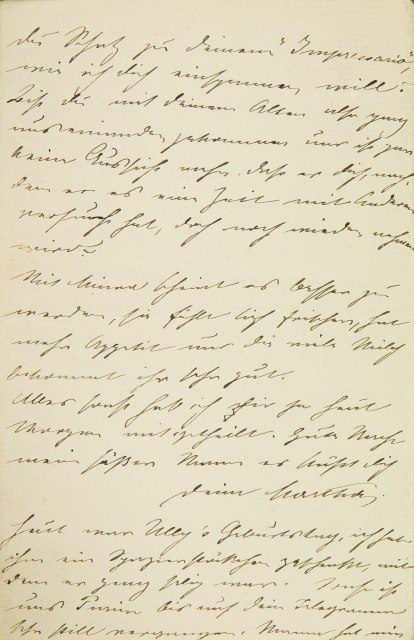 du Schatz zu deinem "Impressario",
wie ich dich einspannen will?
Bist du mit deinem Alten also ganz
auseinander gekommen und ist gar
keine Aussicht mehr, daß er dich, nach
dem er es eine Zeit mit Anderen
versucht hat, doch noch wieder nehmen
wird?
Mit Minna scheint es besser zu
werden, sie fühlt sich frischer, hat
mehr Appetit und die viele Milch
bekommt ihr sehr gut.
Alles sonst hab ich dir ja heut
Morgen mitgetheilt. Gute Nacht
mein süßer Mann es küßt dich
deine Martha.
Heut war Ully's Geburtstag, ich hab
ihm ein geschenkt, mit
dem er ganz selig war. Sonst ist
uns bis auf dein Telegramm
sehr still vergangen. Mama hat mir